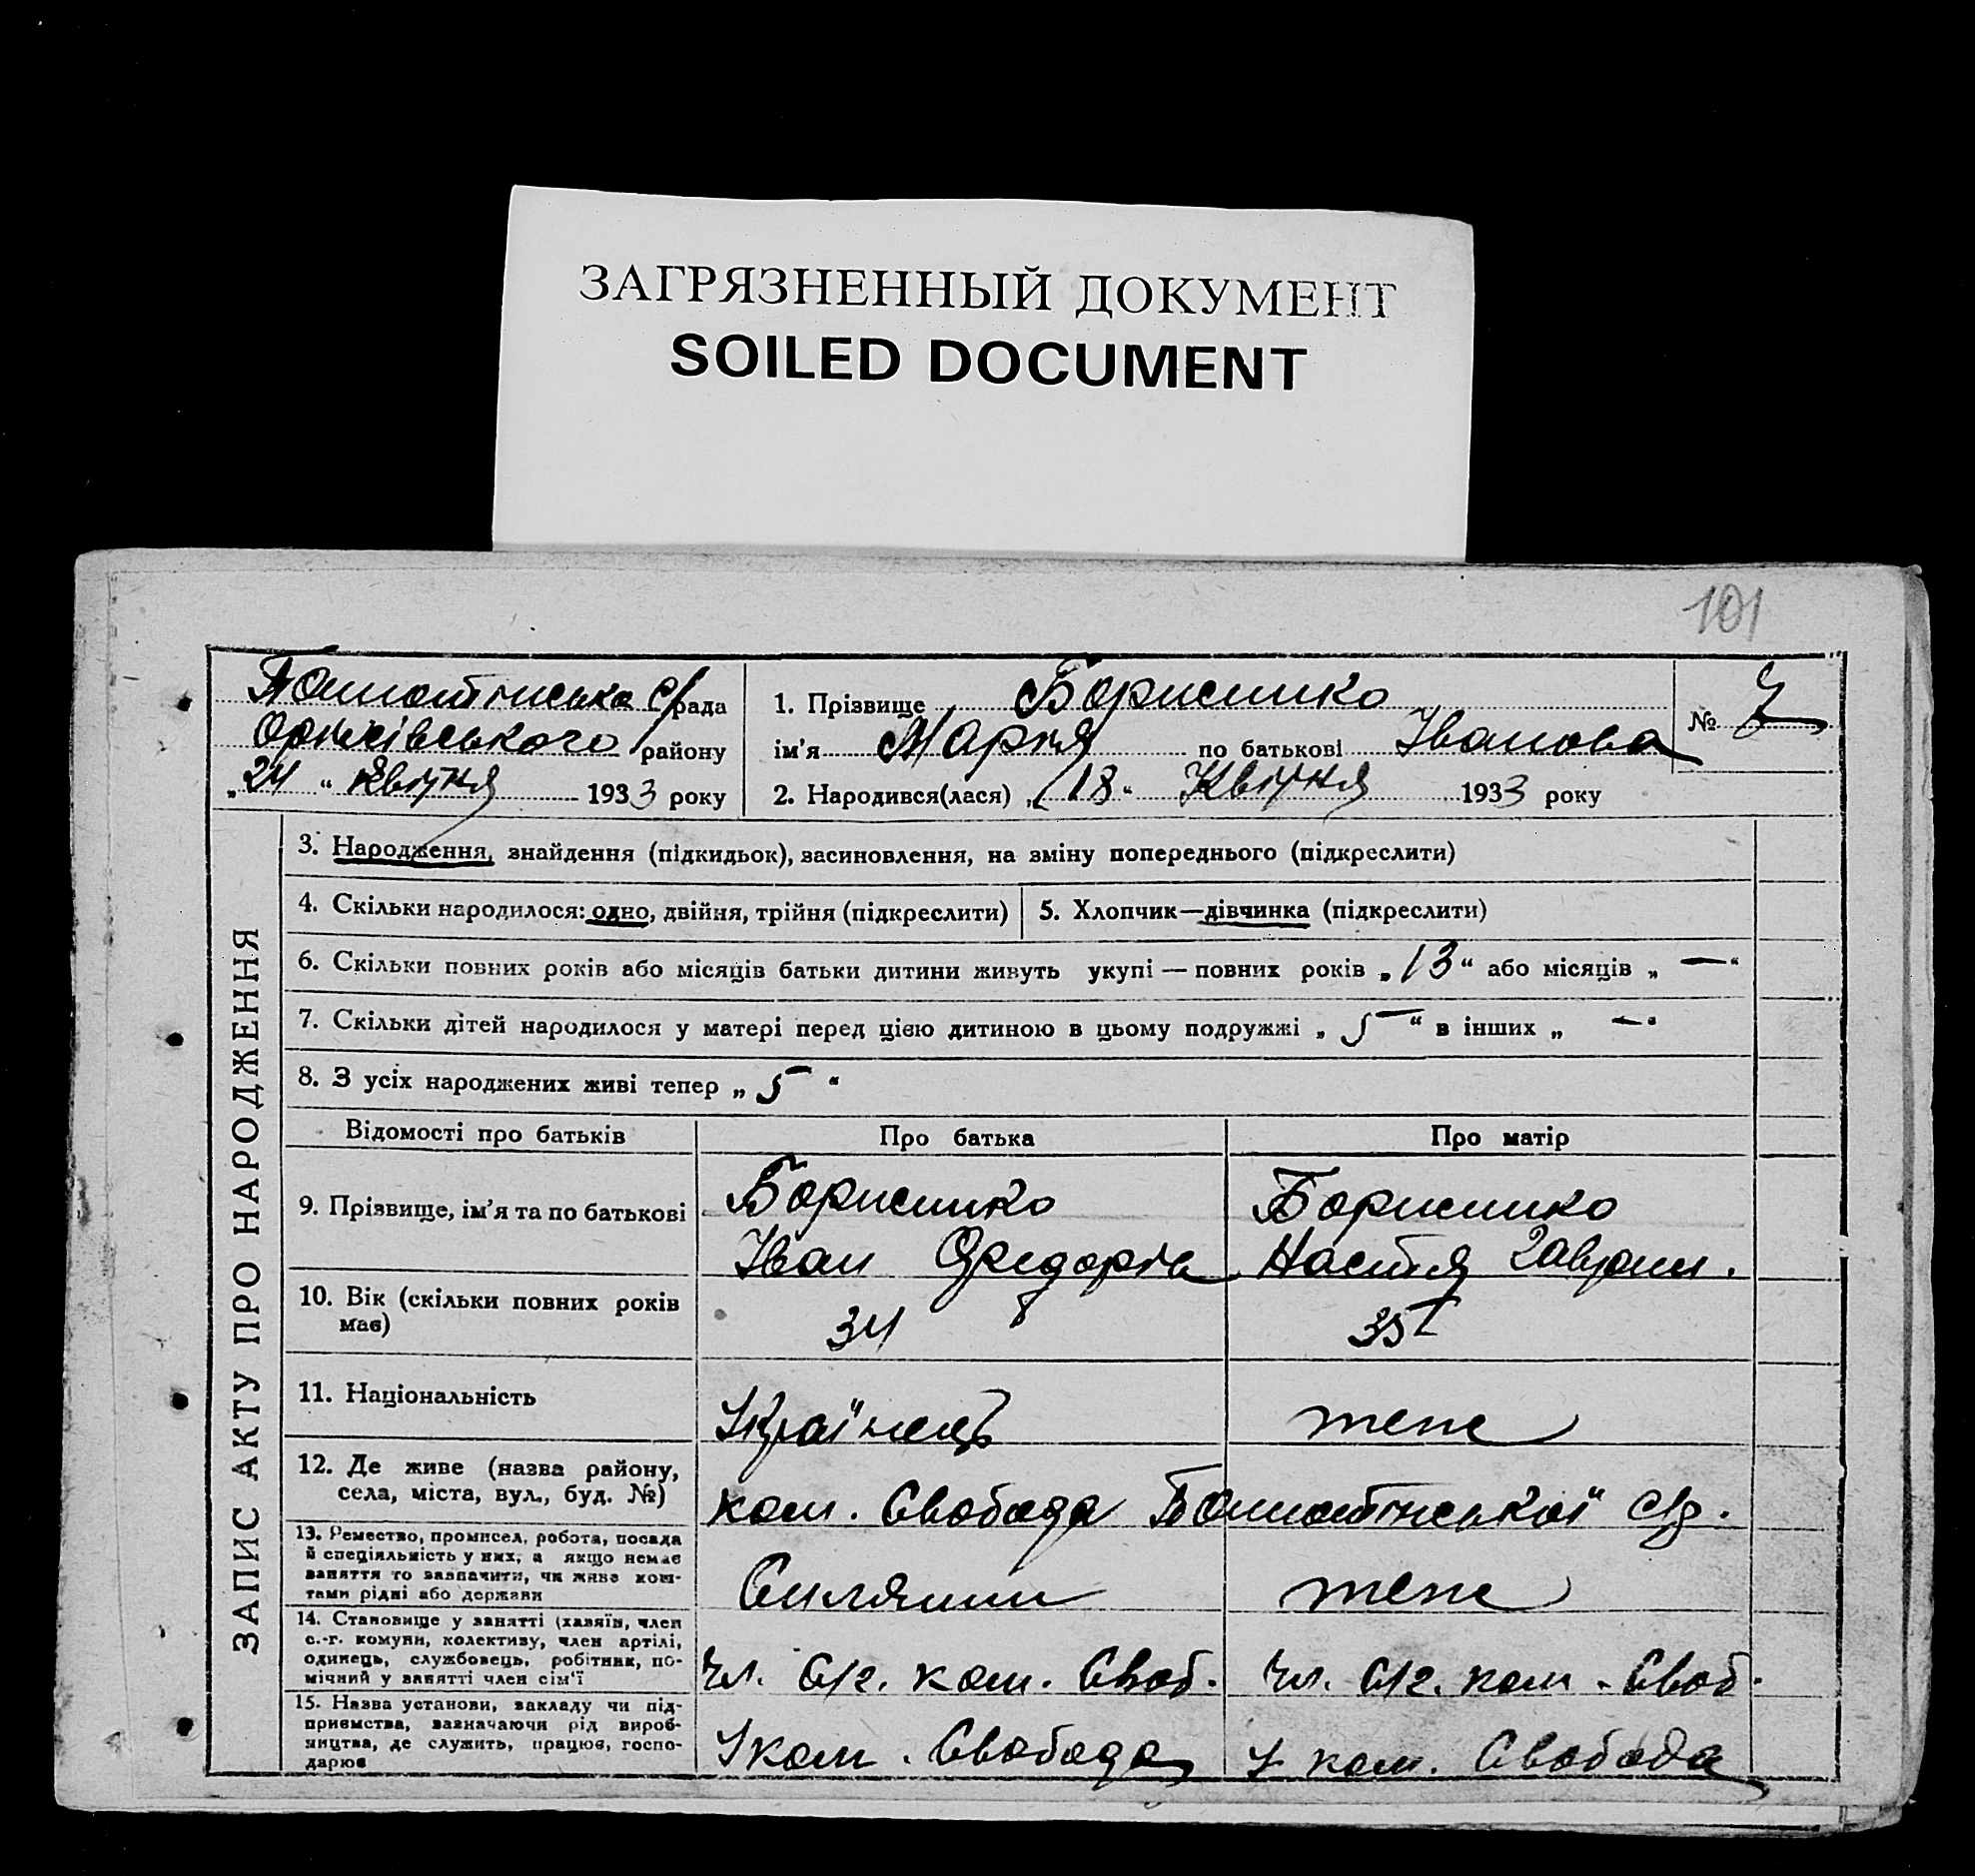 ЗАГРЯЗНЕННЫЙ ДОКУМЕНТ
SOILED DOCUMENT
101
с/рада
Оржівського району
"24" Квітня 1933 року
1. Прізвище Борисенко
ім'я Марія по батькові Іванова
2. Народився(лася) "18" Квітня 1933 року
№ 7
ЗАПИС АКТУ ПРО НАРОДЖЕННЯ
3. Народження, знайдення (підкидьок), засиновлення, на зміну попереднього (підкреслити)
4. Скільки народилося: одно, двійня, трійня (підкреслити)
5. Хлопчик—дівчинка (підкреслити)
6. Скільки повних років або місяців батьки дитини живуть укупі — повних років „13“ або місяців „—“
7. Скільки дітей народилося у матері перед цією дитиною в цьому подружжі „5“ в інших „—“
8. З усіх народжених живі тепер „5“
Відомості про батьків
Про батька
Про матір
9. Прізвище, ім'я та по батькові
Борисенко
Іван
Борисенко
Настя Гаврил.
10. Вік (скільки повних років має)
34
35
11. Національність
Українець
теж
12. Де живе (назва району,
села, міста, вул., буд. №)
ком. Свобода
13. Ремество, промисел, робота, посада
й спеціяльність у них, а якщо немає
заняття то зазначити, чи живе кош-
тами рідні або держави
Селянин
теж
14. Становище у занятті (хазяїн, член
с.-г. комуни, колективу, член артілі,
одинець, службовець, робітник, по-
мічний у занятті член сім'ї
чл. с/г. ком. Своб.
чл. с/г. ком. Своб.
15. Назва установи, закладу чи під-
приємства, зазначаючи рід вироб-
ництва, де служить, працює, госпо-
дарює
У ком. Свобода
У ком. Свобода